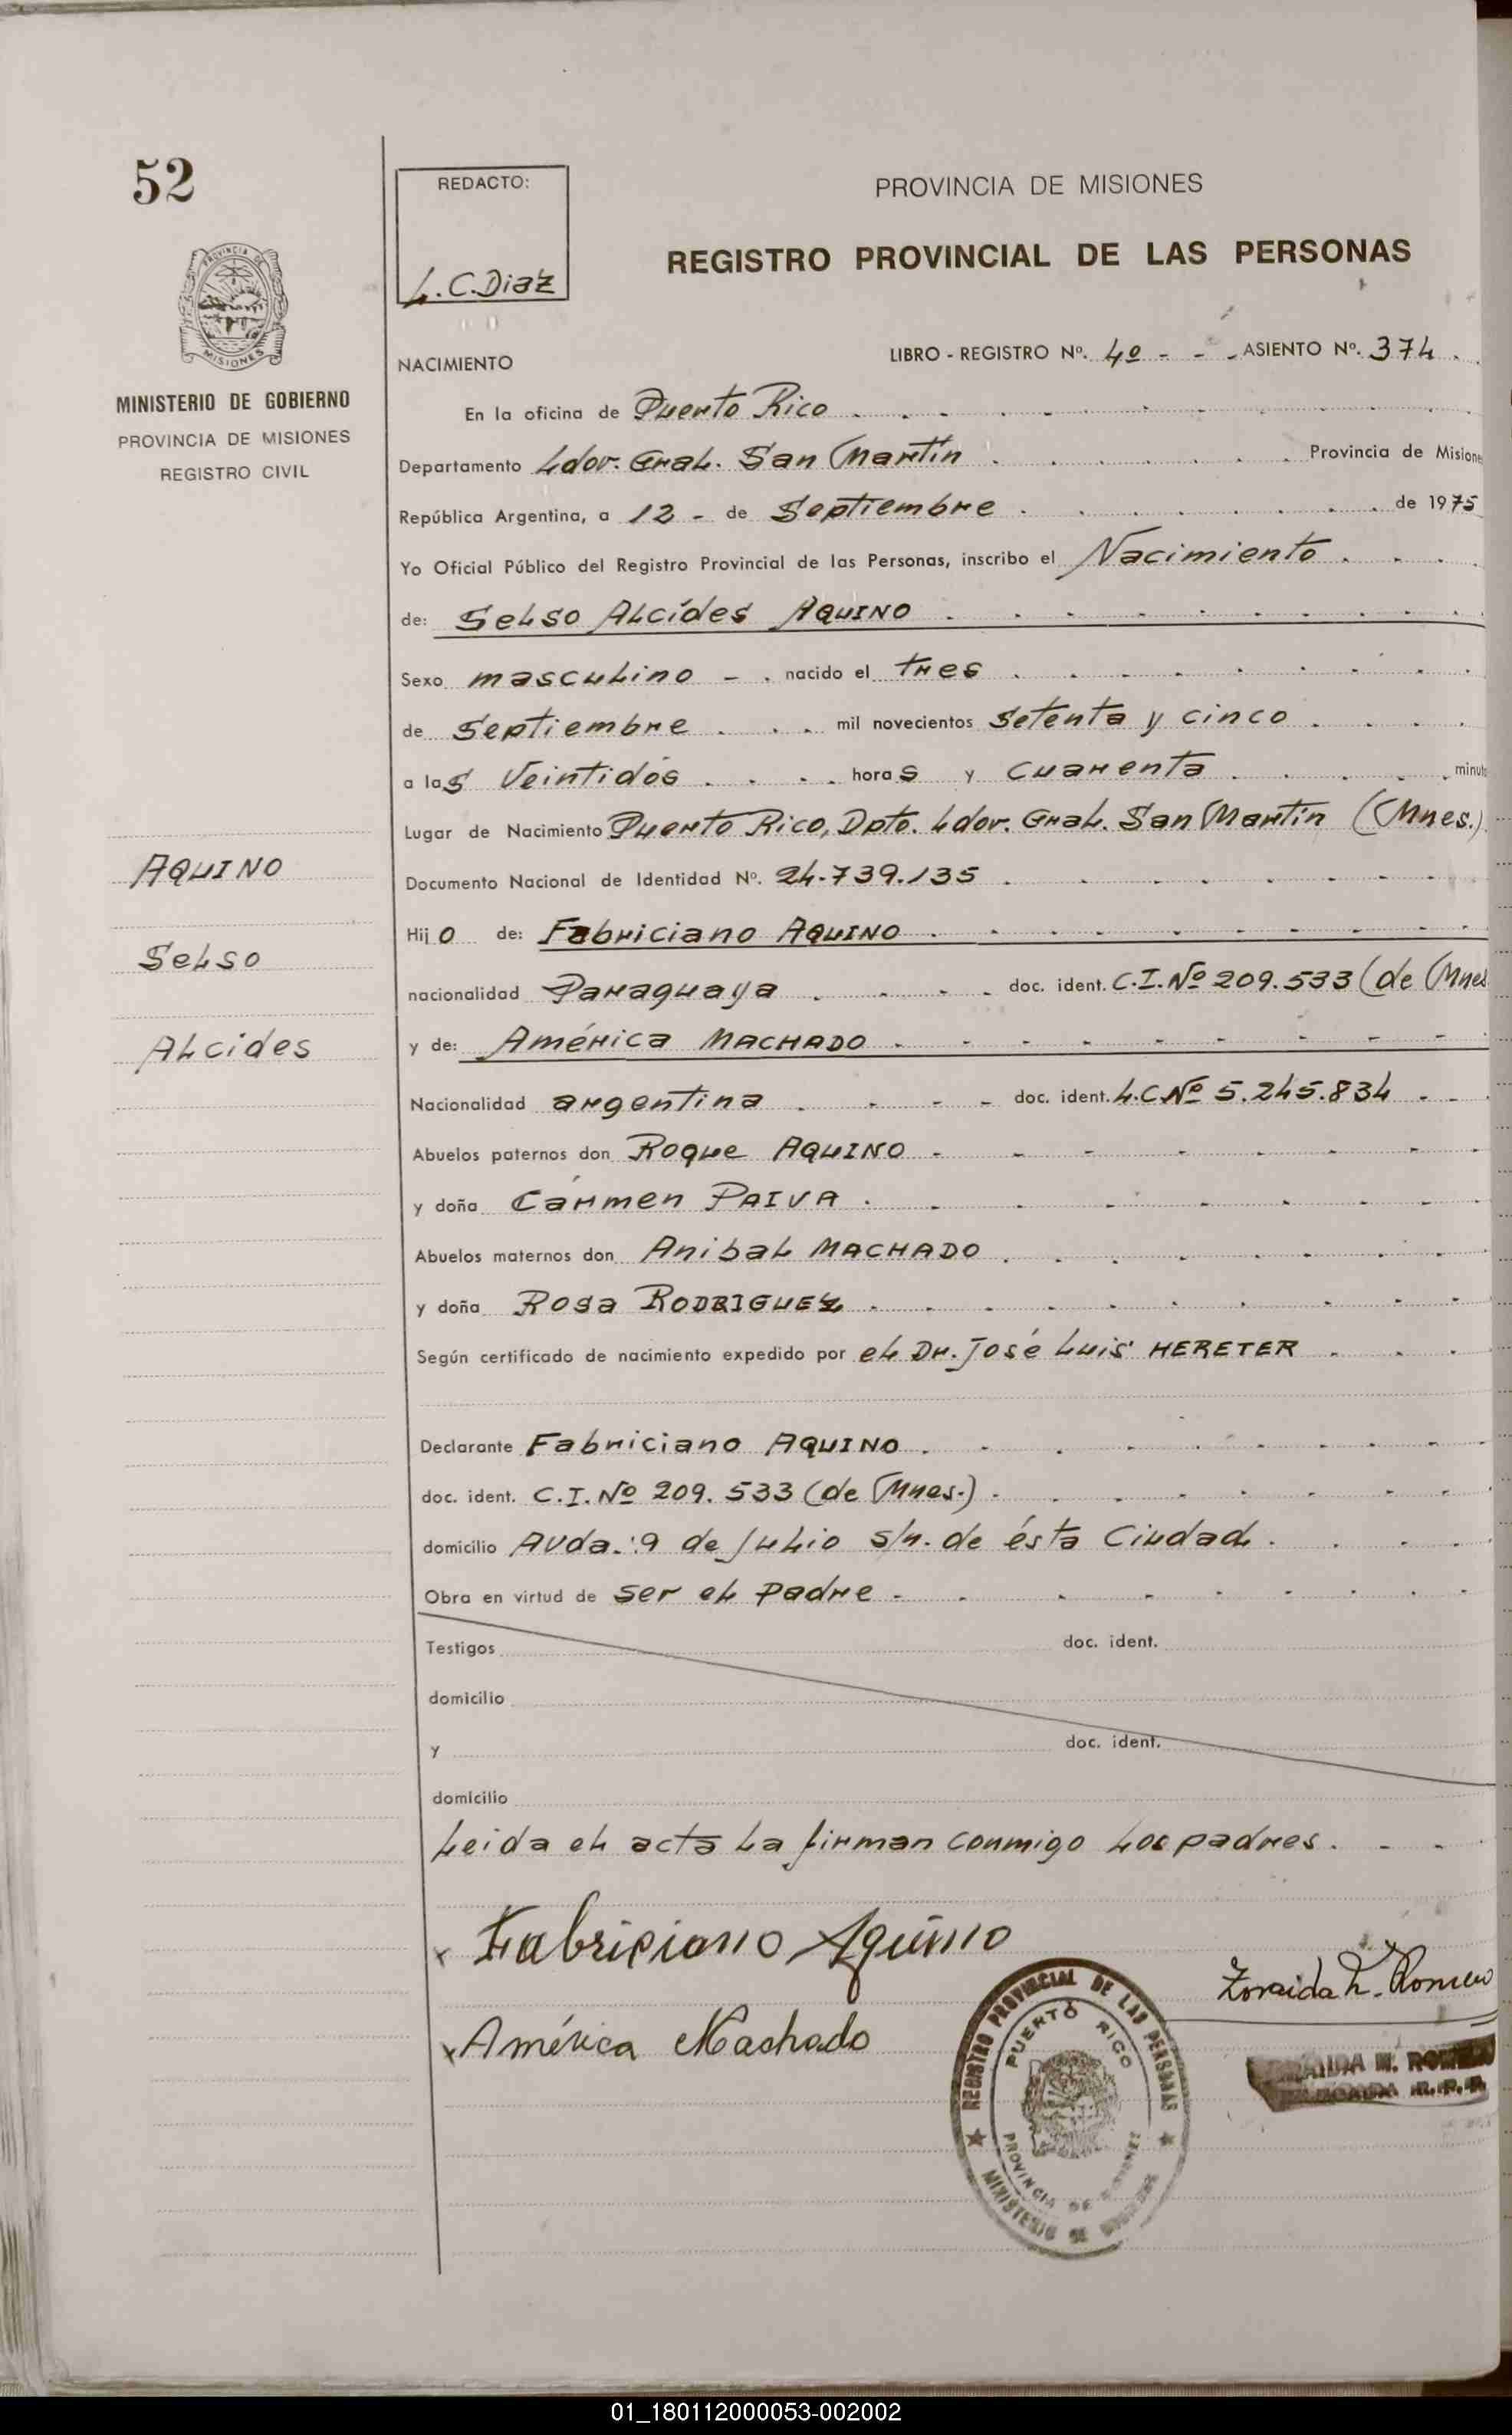 52
PROVINCIA DE MISIONES
MINISTERIO DE GOBIERNO
PROVINCIA DE MISIONES
REGISTRO CIVIL
AQUINO
Selso
Alcides
REDACTO:
L.C.Diaz
PROVINCIA DE MISIONES
REGISTRO PROVINCIAL DE LAS PERSONAS
NACIMIENTO
LIBRO - REGISTRO Nº. 4º - - - ASIENTO Nº. 374 .
En la oficina de Puerto Rico
Departamento Ldor. Gral. San Martín Provincia de Misione
República Argentina, a 12 - de Septiembre de 1975
Yo Oficial Público del Registro Provincial de las Personas, inscribo el Nacimiento
de: Selso Alcídes AQUINO
Sexo masculino - . nacido el tres
de Septiembre mil novecientos setenta y cinco
a las veintidós horas y cuarenta minut
Lugar de Nacimiento Puerto Rico, Dpto. Ldor. Gral. San Martín (Mnes.)
Documento Nacional de Identidad Nº. 24.739.135
Hijo de: Fabriciano AQUINO
nacionalidad Paraguaya doc. ident. C.I.Nº 209.533 (de Mnes
y de: América MACHADO
Nacionalidad argentina doc. ident. L.C.Nº 5.245.834
Abuelos paternos don Roque AQUINO
y doña Cármen PAIVA
Abuelos maternos don Anibal MACHADO
y doña Rosa RODRIGUEZ
Según certificado de nacimiento expedido por el Dr. José Luis HERETER
Declarante Fabriciano AQUINO
doc. ident. C.I. Nº 209.533 (de Mnes.)
domicilio Avda. 9 de Julio s/n. de ésta Ciudad.
Obra en virtud de ser el padre
Testigos doc. ident.
domicilio
y doc. ident.
domicilio
Leida el acta la firman conmigo los padres.
x Fabriciano Aquino
x América Machado
Zoraida Romero
REGISTRO PROVINCIAL DE LAS PERSONAS
PUERTO RICO
PROVINCIA DE
MINISTERIO DE
01_180112000053-002002